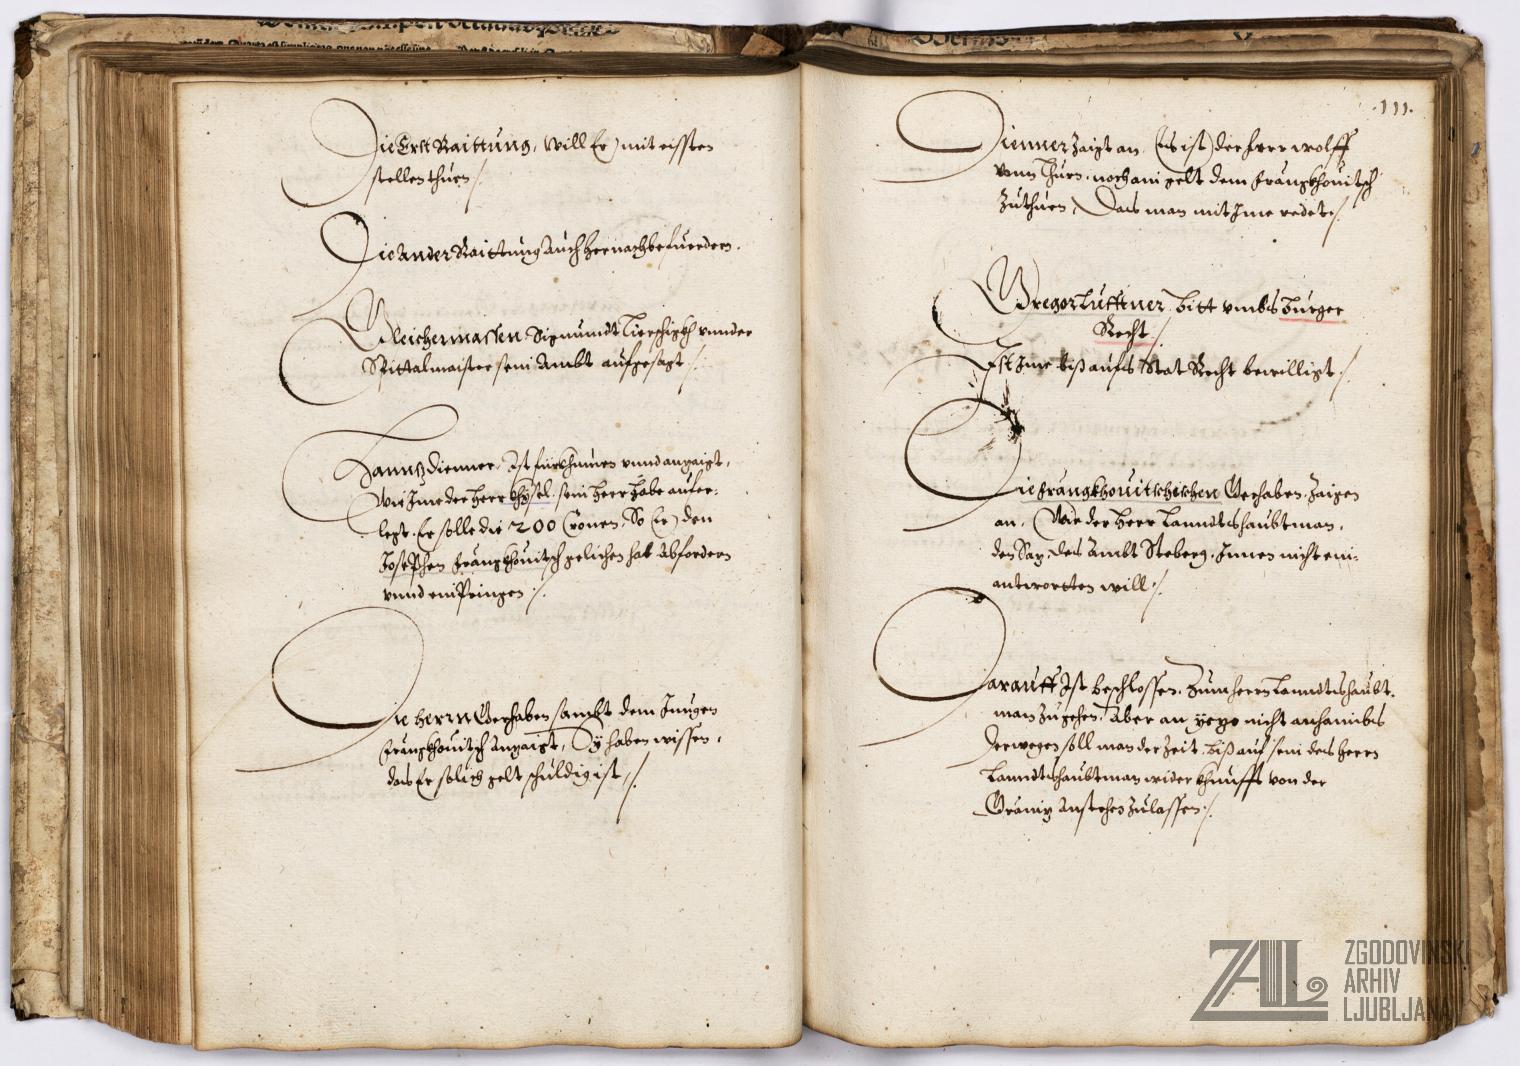 Die Erst Raittung, will Er mit eissten
stellen thuen /.
Die Ander Raittung Auch hernach befuerdern.
Gleichermassen Sigmundt vnnder
Spittalmaister sein Ambt aufgesagt /.
Hanns Dienner, Ist fürkhumen vnnd anzaigt,
Wie Ime der Herr Khysel, sein Herr habe aufer-
legt. Er solle die 200 Cronen, So Er den
Josephen Frangkhouitsch gelichen hat Abfordern
vnnd ein Pringen /.
Die Herrn Gerhaben sambt dem Jungen
Frangkhouitsch Anzaigt, Sy haben wissen,
das Er solich gelt schuldig ist /.
.111.
Dienner Zaigt an, Es ist der Herr Wolff
vom Thurn, noch ain gelt dem Frangkhouitsch
Zuthuen, Das man mit Ime redet /.
Gregor Luttner, bitt vmbs Burger
Recht /.
Ist Ime biß aufs Stat Recht bewilligt /.
Die Frangkhouitschischen Gerhaben, Zaigen
an, Wie der Herr Lanndtshaubtman,
den Say, des Ambt Steberg, Innen nicht ein-
antwortten will /.
Darauff Ist beschlossen, Zum Herrn Lanndtshaubt-
man Zugehen, Aber an yezo nicht anhaimbs
Derwegen soll man der Zeit, biß auf sein des Herrn
Lanndtshaubtman wider Khunfft von der
Gräniz Anstehen Zulassen /.
ZAL
ZGODOVINSKI
ARHIV
LJUBLJANA